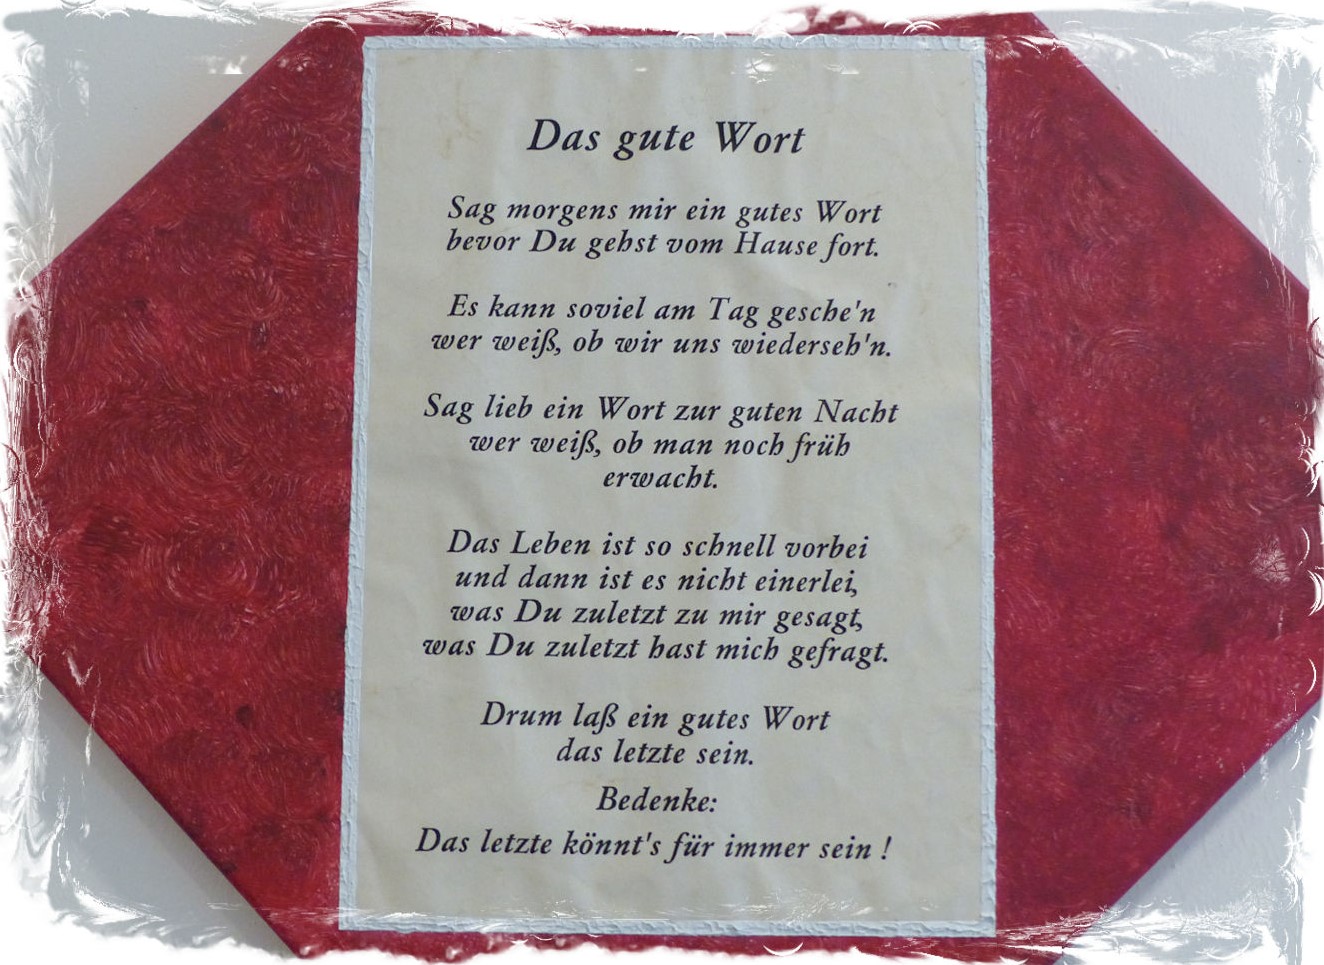 Das gute Wort
Sag morgens mir ein gutes Wort
bevor Du gehst vom Hause fort.
Es kann soviel am Tag gesche'n
wer weiß, ob wir uns wiederseh'n.
Sag lieb ein Wort zur guten Nacht
wer weiß, ob man noch früh
erwacht.
Das Leben ist so schnell vorbei
und dann ist es nicht einerlei,
was Du zuletzt zu mir gesagt,
was Du zuletzt hast mich gefragt.
Drum laß ein gutes Wort
das letzte sein.
Bedenke:
Das letzte könnt's für immer sein !